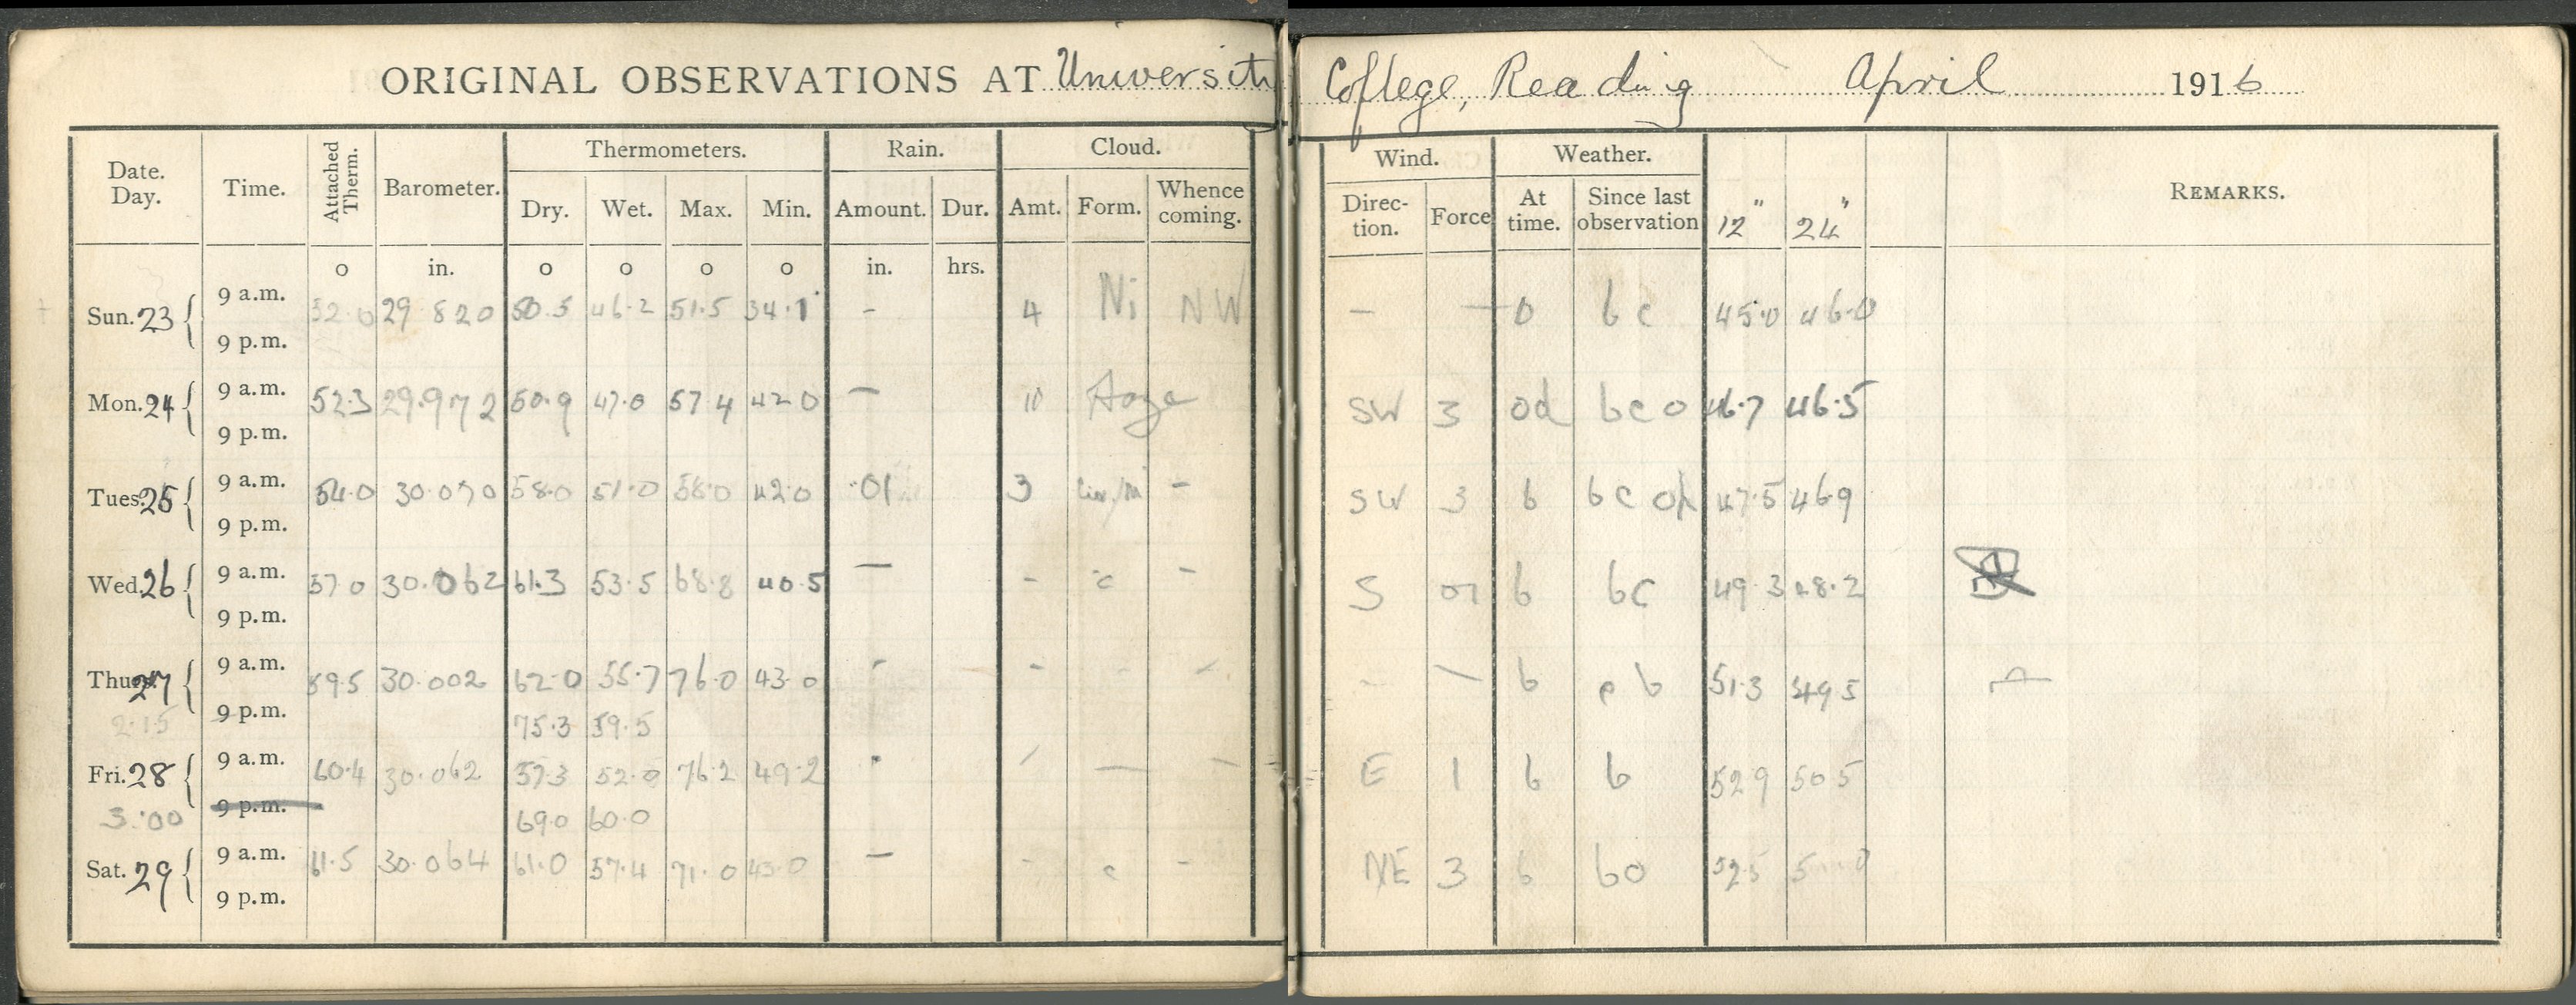 ORIGINAL OBSERVATIONS AT University College, Reading April 1916
Date. Day. Time. Attached Therm. Barometer. Thermometers. Rain. Cloud. Wind. Weather. 12" 24" REMARKS.
Dry. Wet. Max. Min. Amount. Dur. Amt. Form. Whence coming. Direc-tion. Force At time. Since last observation
o in. o o o o in. hrs.
Sun. 23 9 a.m. 52.0 29 820 50.5 46.2 51.5 34.1 - 4 Ni NW - - o bc 45.0 46.0
9 p.m.
Mon. 24 9 a.m. 52.3 29.972 50.9 47.0 57.4 42.0 - 10 Haze SW 3 od bco 46.7 46.5
9 p.m.
Tues. 25 9 a.m. 54.0 30.070 58.0 51.0 58.0 42.0 .01 3 - SW 3 b bc 47.5 46.9
9 p.m.
Wed. 26 9 a.m. 57.0 30.062 61.3 53.5 68.8 40.5 - - c - S b bc 49.3 48.2
9 p.m.
Thurs. 27 9 a.m. 59.5 30.002 62.0 55.7 76.0 43.0 - - - - - - b b 51.3 49.5
2.15 9 p.m. 75.3 59.5
Fri. 28 9 a.m. 60.4 30.062 57.3 52.0 76.2 49.2 - - - - E 1 b b 52.9 50.5
3.00 9 p.m. 69.0 60.0
Sat. 29 9 a.m. 61.5 30.064 61.0 57.4 71.0 43.0 - - c - NE 3 b bo 52.5
9 p.m.